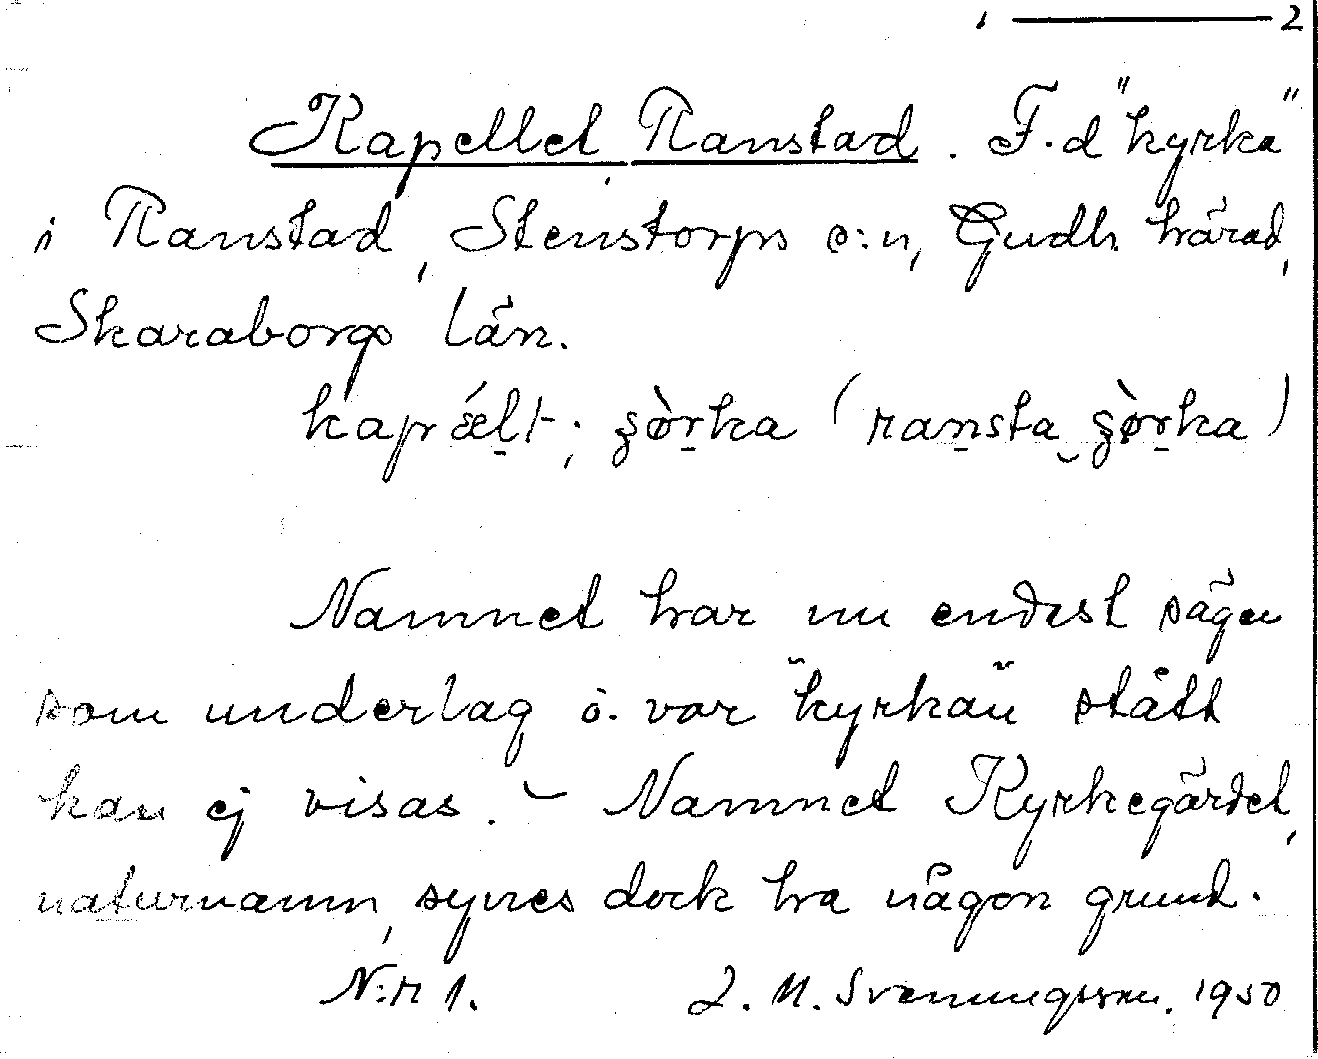 1 ——— 2
Kapellet Ranstad. F.d "kyrka"
i Ranstad, Stenstorps s:n, Gudh. härad,
Skaraborgs län.
kapǽl̠t; ʂø̀r̠ka (ran̠sta‿ʂø̀r̠ka)
Namnet har nu endast sägen
som underlag o. var "kyrkan" stått
kan ej visas. – Namnet Kyrkegärdet,
naturnamn, synes dock ha någon grund.
N:r 1. L. M. Svenungsson. 1950